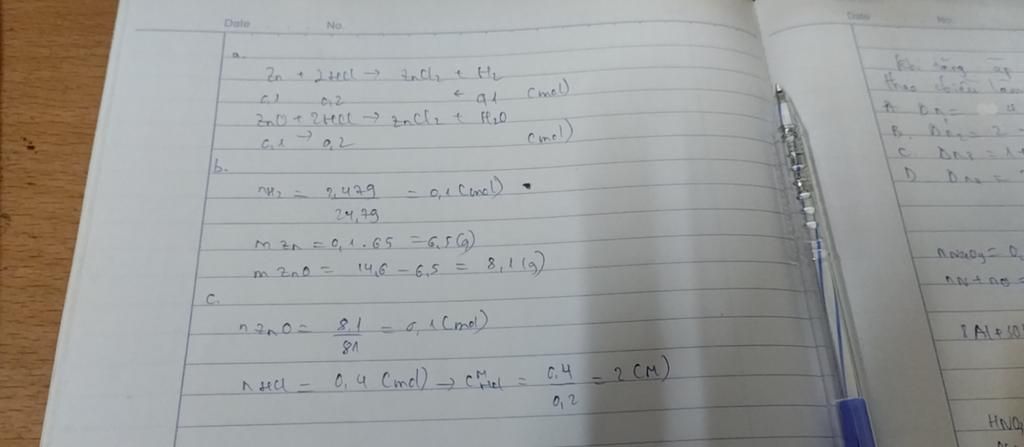 Date No.
a.
Zn + 2HCl → ZnCl₂ + H₂
0,1 0,2 ← 0,1 (mol)
ZnO + 2HCl → ZnCl₂ + H₂O
0,1 → 0,2 (mol)
b.
nH₂ = 2,479 / 24,79 = 0,1 (mol)
m Zn = 0,1 . 65 = 6,5 (g)
m ZnO = 14,6 - 6,5 = 8,1 (g)
c.
n ZnO = 8,1 / 81 = 0,1 (mol)
n HCl = 0,4 (mol) → CM HCl = 0,4 / 0,2 = 2 (M)
Date No.
A.
B.
C.
D.
HNO₃